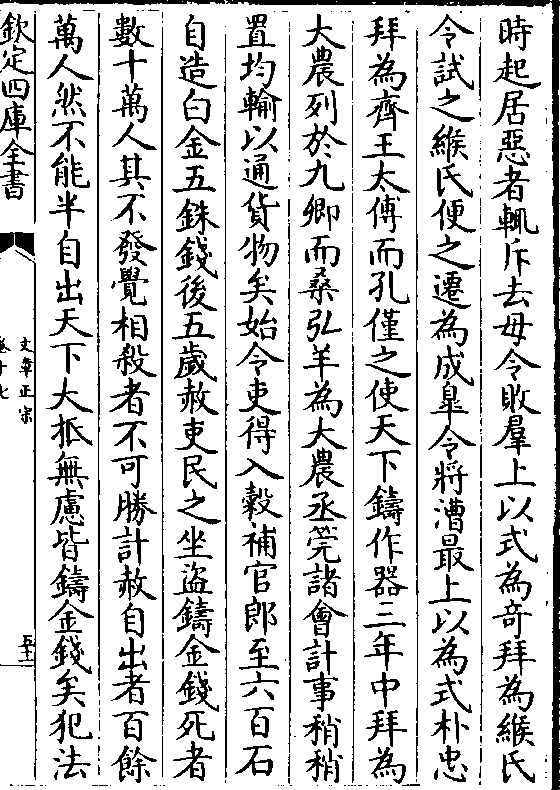 時起居惡者輒斥去毋令敗羣上以式為竒拜為緱氏
令試之緱氏便之遷為成臯令將漕最上以為式朴忠
拜為齊王太傅而孔僅之使天下鑄作器三年中拜為
大農列於九卿而桑弘羊為大農丞筦諸會計事稍稍
置均輸以通貨物矣始令吏得入榖補官郎至六百石
自造白金五銖錢後五歲赦吏民之坐盜鑄金錢死者
數十萬人其不發覺相殺者不可勝計赦自出者百餘
萬人然不能半自出天下大抵無慮皆鑄金錢矣犯法
欽定四庫全書
文章正宗
卷十七
五十二